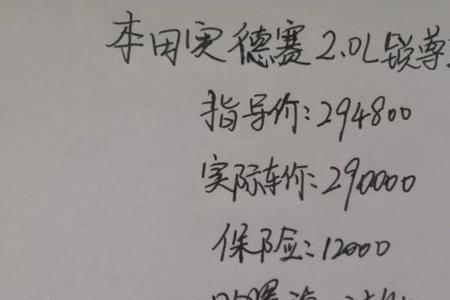 本田奥德赛2.0L锐尊
指导价:294800
实际车价:290000
保险:12000